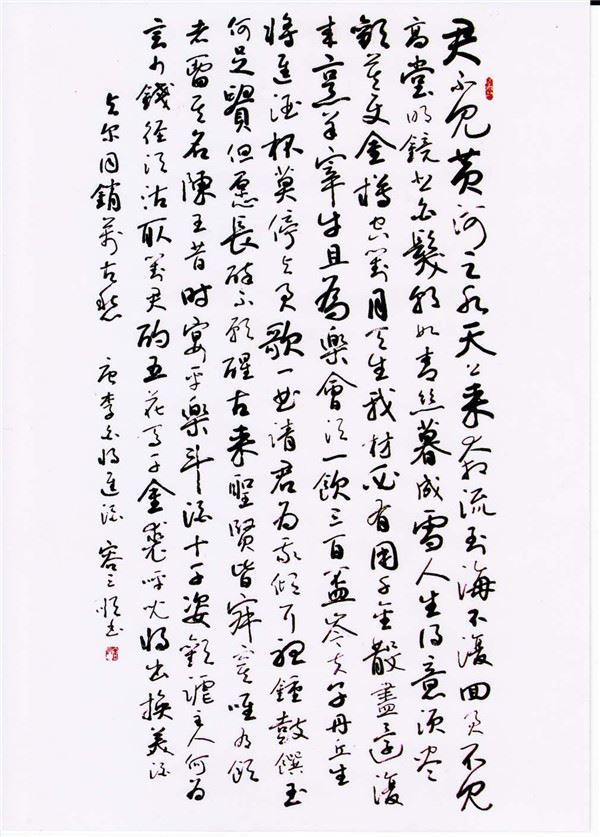 君不見黄河之水天上来奔流到海不復回君不見
高堂明鏡悲白髮朝如青丝暮成雪人生得意須盡
歡莫使金樽空對月天生我材必有用千金散盡還復
来烹羊宰牛且為樂會須一飲三百盃岑夫子丹丘生
將進酒杯莫停与君歌一曲請君為我傾耳聽鍾鼓饌玉
何足貴但愿長醉不願醒古来聖賢皆寂寞唯有飲
者留其名陳王昔時宴平樂斗酒十千恣歡謔主人何為
言少錢徑須沽取對君酌五花馬千金裘呼兒將出換美酒
与尔同銷萬古愁 唐李白將進酒 書